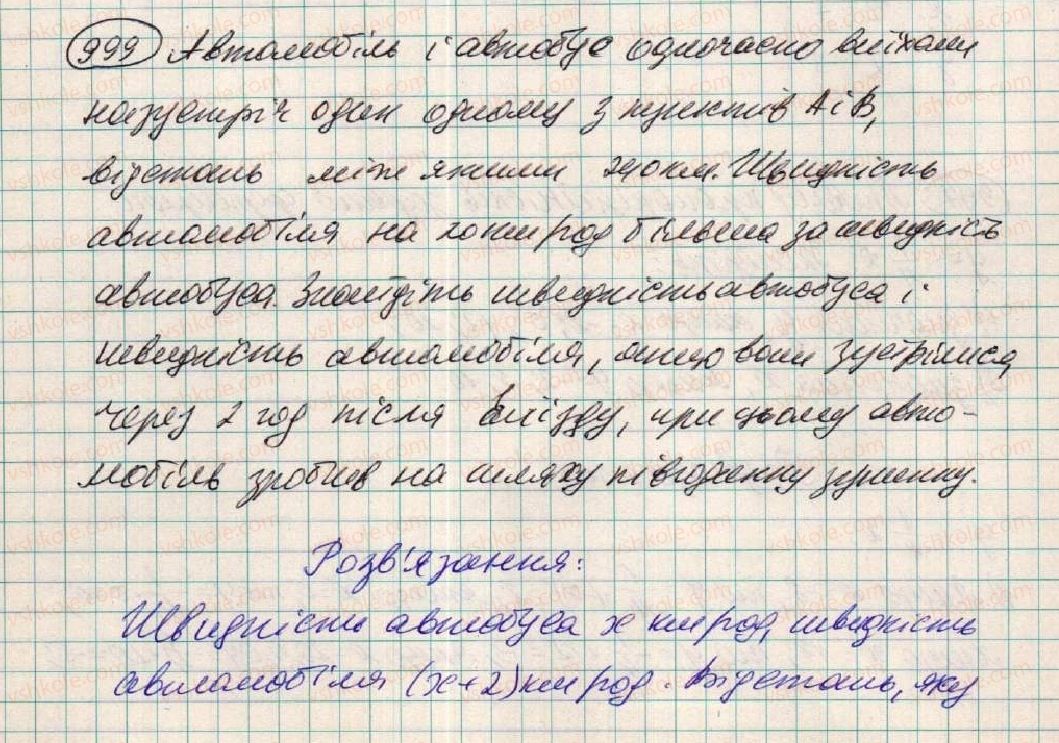 999 Автомобіль і автобус одночасно виїхали
назустріч один одному з пунктів А і В,
відстань між якими 240 км. Швидкість
автомобіля на 20 км/год більша за швидкість
автобуса. Знайдіть швидкість автобуса і
швидкість автомобіля, якщо вони зустрілися
через 2 год після виїзду, при цьому авто-
мобіль зробив на шляху півгодинну зупинку.
Розв'язання:
Швидкість автобуса x км/год, швидкість
автомобіля (x+2) км/год. Відстань, яку